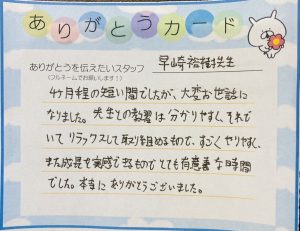 ありがとうカード
ありがとうを伝えたいスタッフ
(フルネームでお願いします！)
早崎裕樹先生
4ヶ月程の短い間でしたが、大変お世話に
なりました。先生との教習は分かりやすく、それで
いてリラックスして取り組めるもので、すごくやりやすく、
また成長を実感できるものでとても有意義な時間
でした。本当にありがとうございました。